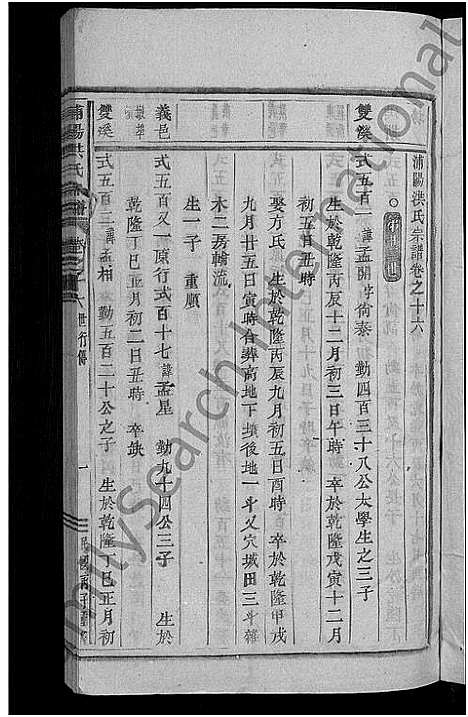 浦陽洪氏宗譜卷之十六
雙溪
式五百一 諱孟開字尙泰 勤四百三十八公太學生之三子
生於乾隆丙辰十二月初三日午時 卒於乾隆戊寅十二月
初五日丑時
娶方氏 生於乾隆丙辰九月初五日酉時 卒於乾隆甲戌
九月廿五日寅時合葬高地下墳後地一斗又穴城田三斗雜
木二房輪流
生一子 重順
義邑
式五百又一 原行式百十七 諱孟星 勤九十四公三子 生於
乾隆丁巳正月初二日丑時 卒缺
雙溪
式五百二 諱孟相 勤五百二十公之子 生於乾隆丁巳正月初
浦陽洪氏宗譜 卷之十六 世行傳 一
FamilySearch International